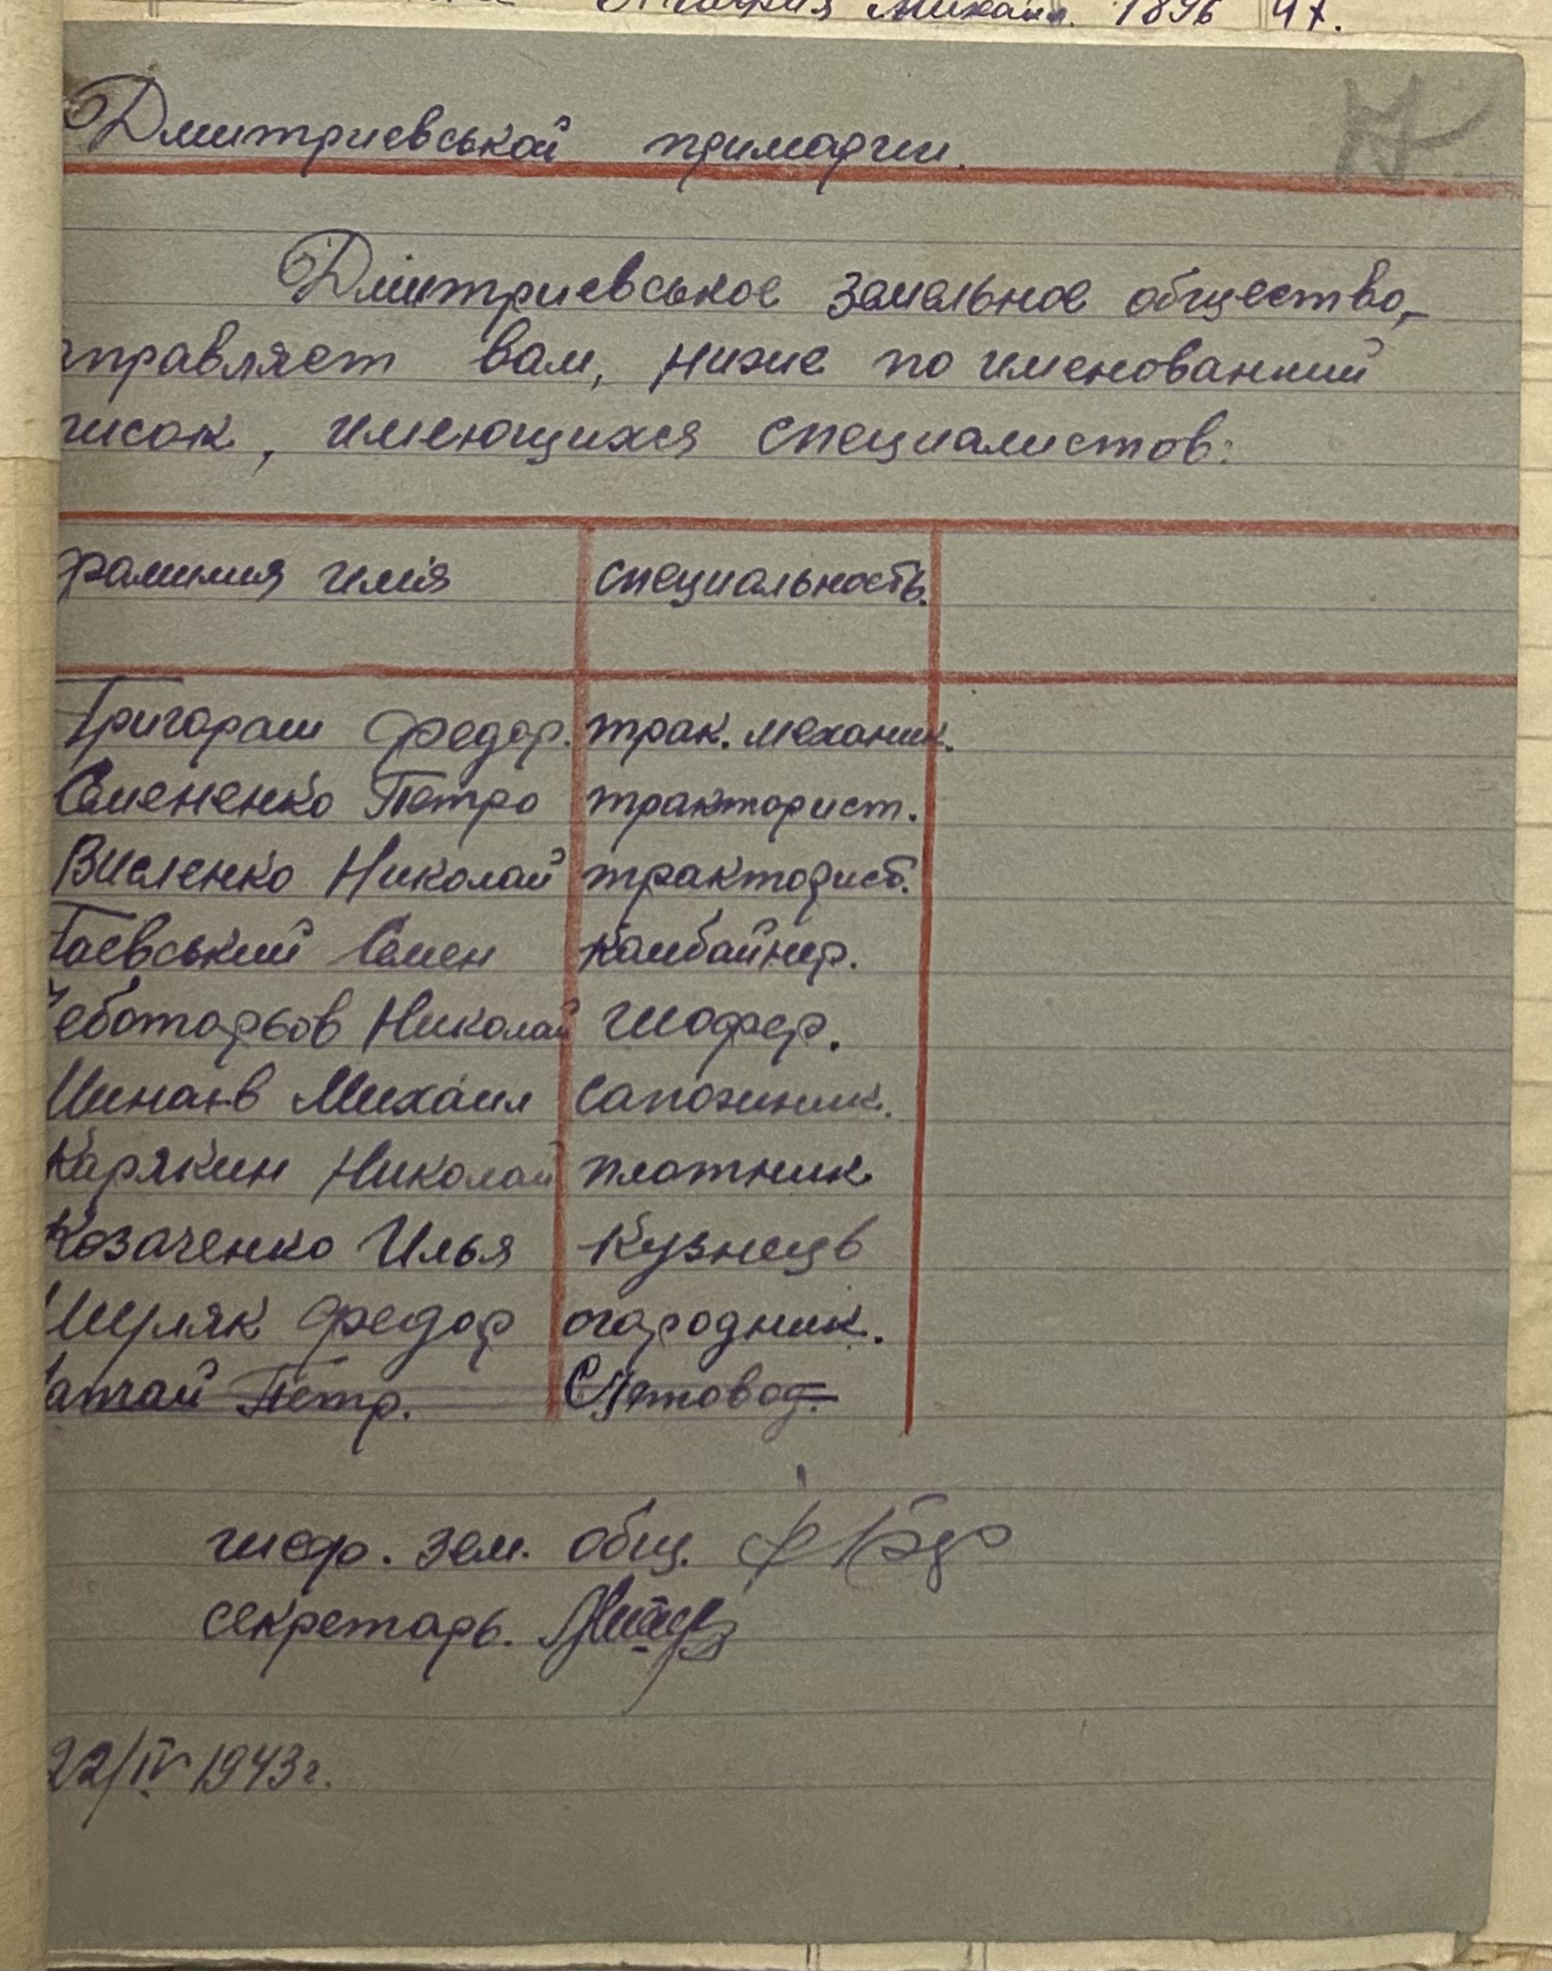 Михаил. 1896 47.
Дмитриевськой примарии.
Дмитриевськое земельное общество,
аправляет вам, ниже по именованний
писок, имеющихся специалистов:
фамилия имія специальность.
Григораш Федор. трак. механик.
Семененко Петро тракторист.
Висленко Николай тракторист.
Гаевський Семен комбайнер.
Чеботарьов Николай шофер.
Минаєв Михаил сапожник.
Карякин Николай плотник
Козаченко Илья Кузнець
Шуляк Федор огородник.
Петр.
шеф. зем. общ.
секретарь.
22/IV 1943г.